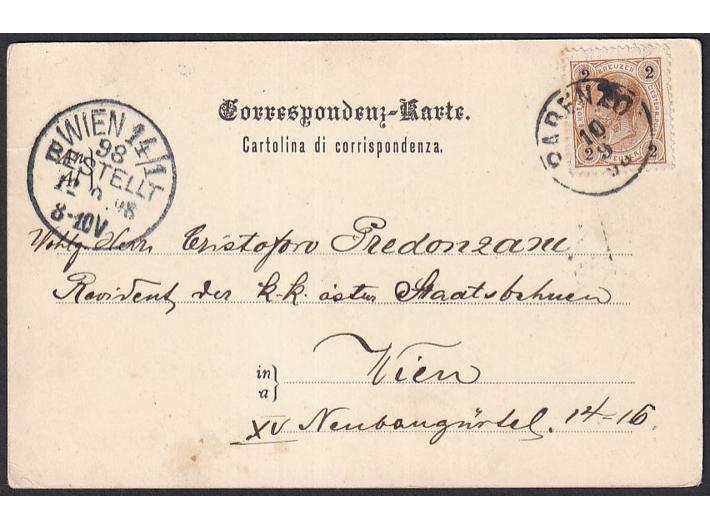 Correspondenz-Karte.
Cartolina di corrispondenza.
2 KREUZER 2
2 2
PARENZO
10
98
WIEN 14/1
98
BESTELLT
8-10V
Wohlg. Herr Cristoforo Predonzani
Revident der k.k. öster Staatsbahnen
in
a} Wien
XV Neubaugürtel. 14-16